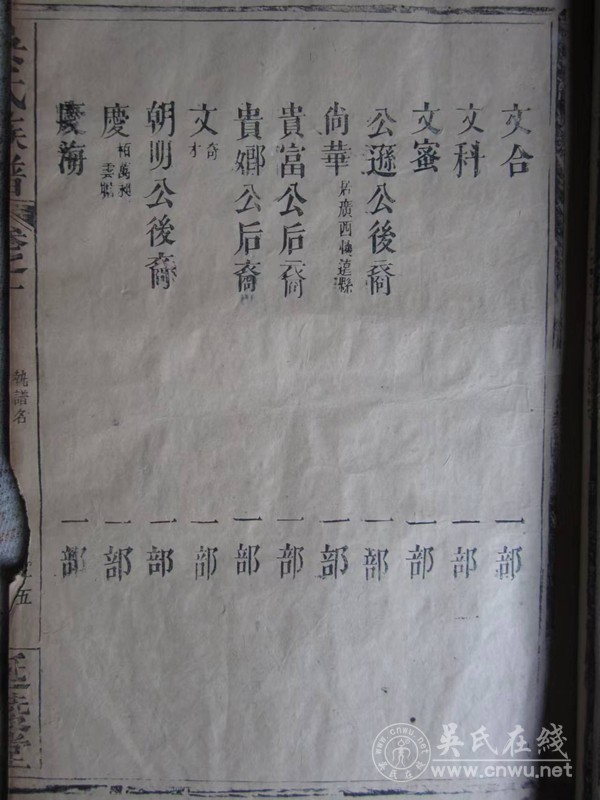 文合 一部
文科 一部
文蜜 一部
公遜公後裔 一部
尚華 居廣西懷遠縣 一部
貴富公后裔 一部
貴鄉公后裔 一部
文 奇 才 一部
朝明公後裔 一部
慶 栢萬 雲 一部
慶海 一部
氏族譜 卷之一 執譜名 五 延陵堂
吳氏在线
www.cnwu.net